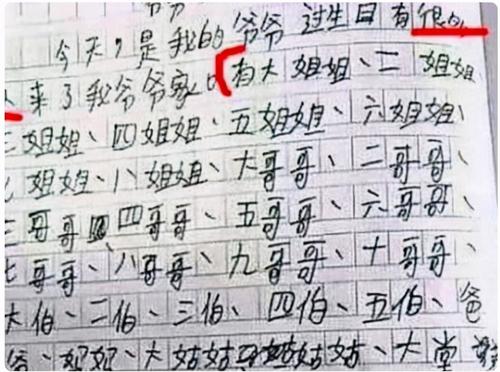 今天，是我的爷爷过生日有很
来了我爷爷家。有大姐姐、二姐姐
姐姐、四姐姐、五姐姐、六姐姐、
姐姐、八姐姐、大哥哥、二哥哥、
三哥哥、四哥哥、五哥哥、六哥哥、
七哥哥、八哥哥、九哥哥、十哥哥、
大伯、二伯、三伯、四伯、五伯、爸
妃妃、大姑姑、姑姑、大堂